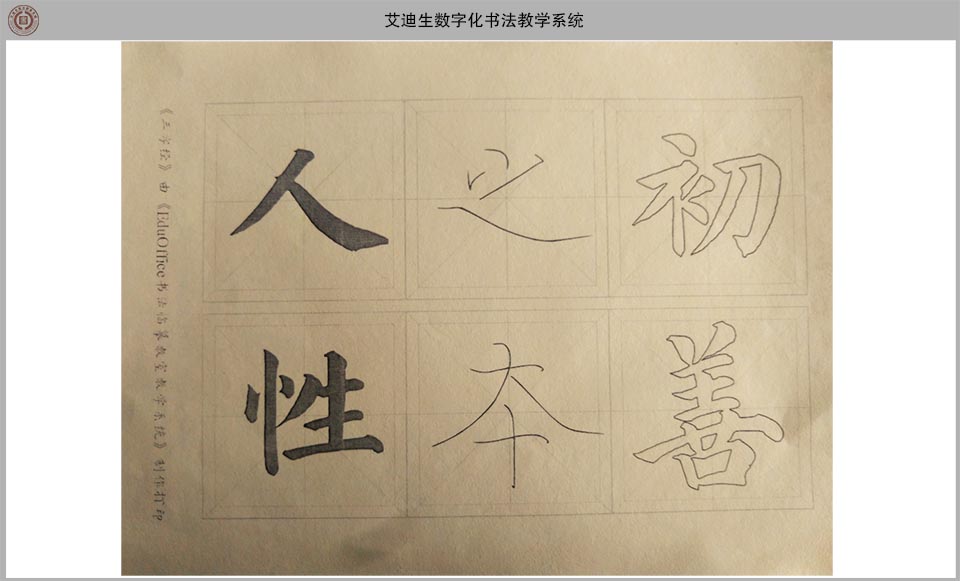 艾迪生数字化书法教学系统
人之初
性本善
《三字经》由《EduOffice书法临摹教室教学系统》制作打印